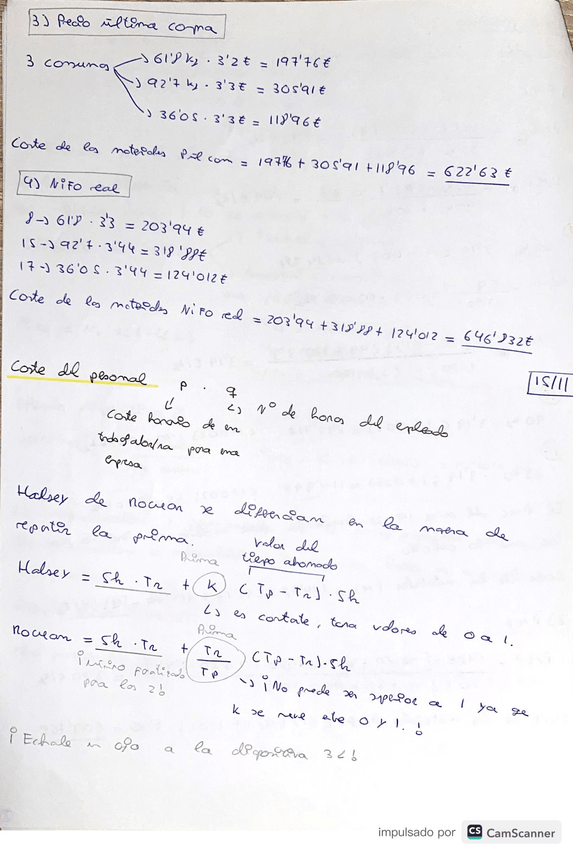 3) Precio última compra
3 consumos → 61'8 kg · 3'2 € = 197'76 €
→ 92'7 kg · 3'3 € = 305'91 €
→ 36'05 · 3'3 € = 118'96 €
Coste de los materiales = 197'76 + 305'91 + 118'96 = 622'63 €
4) NIFO real
8 → 61'8 · 3'3 = 203'94 €
15 → 92'7 · 3'44 = 318'88 €
17 → 36'05 · 3'44 = 124'012 €
Coste de los materiales NIFO real = 203'94 + 318'88 + 124'012 = 646'832 €
Coste del personal p · q
15/11
↳ Nº de horas del empleado
Coste horario de un
trabajador/ra para una
empresa
Halsey de Rowan se diferencian en la manera de
repartir la prima.
valor del
Prima tiempo ahorrado
Halsey = Sh · Tr + K (Tp - Tr) · Sh
↳ es constante, tiene valores de 0 a 1.
Prima
Rowan = Sh · Tr + Tr/Tp (Tp - Tr) · Sh
para los 2!
→ ¡No puede ser superior a 1 ya que
K se mueve entre 0 y 1.!
¡Echale un ojo a la diapositiva
impulsado por CS CamScanner